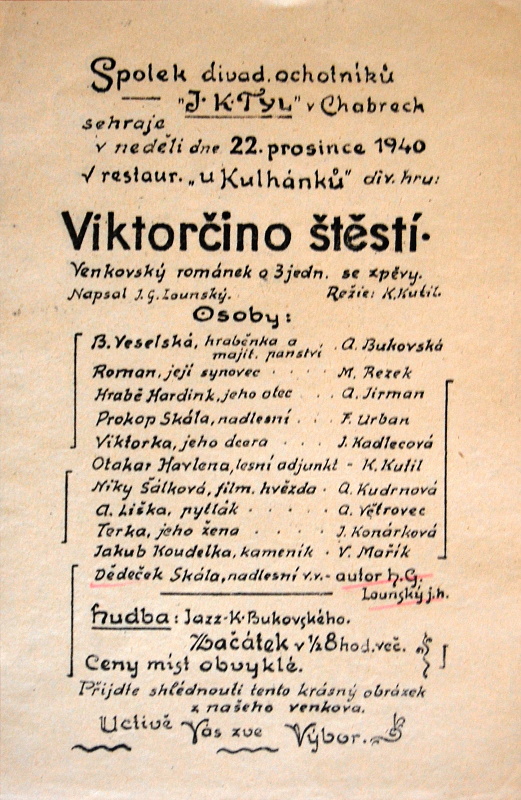 Spolek divad. ochotníků
"J. K. TYL" v Chabrech
sehraje
v neděli dne 22. prosince 1940
V restaur. „u Kulhánků" div. hru:
Viktorčino štěstí.
Venkovský románek o 3 jedn. se zpěvy.
Napsal J. G. Lounský. Režie: K. Kutil.
Osoby:
B. Veselská, hraběnka a
majit. panství . A. Bukovská
Roman, její synovec . . . . M. Rezek
Hrabě Hardink, jeho otec . . . A. Jirman
Prokop Skála, nadlesní . . . F. Urban
Viktorka, jeho dcera . . . J. Kadlecová
Otakar Havlena, lesní adjunkt - K. Kutil
Niky Šálková, film. hvězda . A. Kudrnová
A. Liška, pytlák . . . . . A. Větrovec
Terka, jeho žena . . . . . J. Konárková
Jakub Koudelka, kameník . V. Mařík
Dědeček Skála, nadlesní v.v. - autor h. G.
Lounský j.h.
hudba: Jazz-K. Bukovského.
Začátek v ½8 hod. več.
Ceny míst obvyklé.
Přijďte shlédnouti tento krásný obrázek
z našeho venkova.
Uctivě Vás zve Výbor.